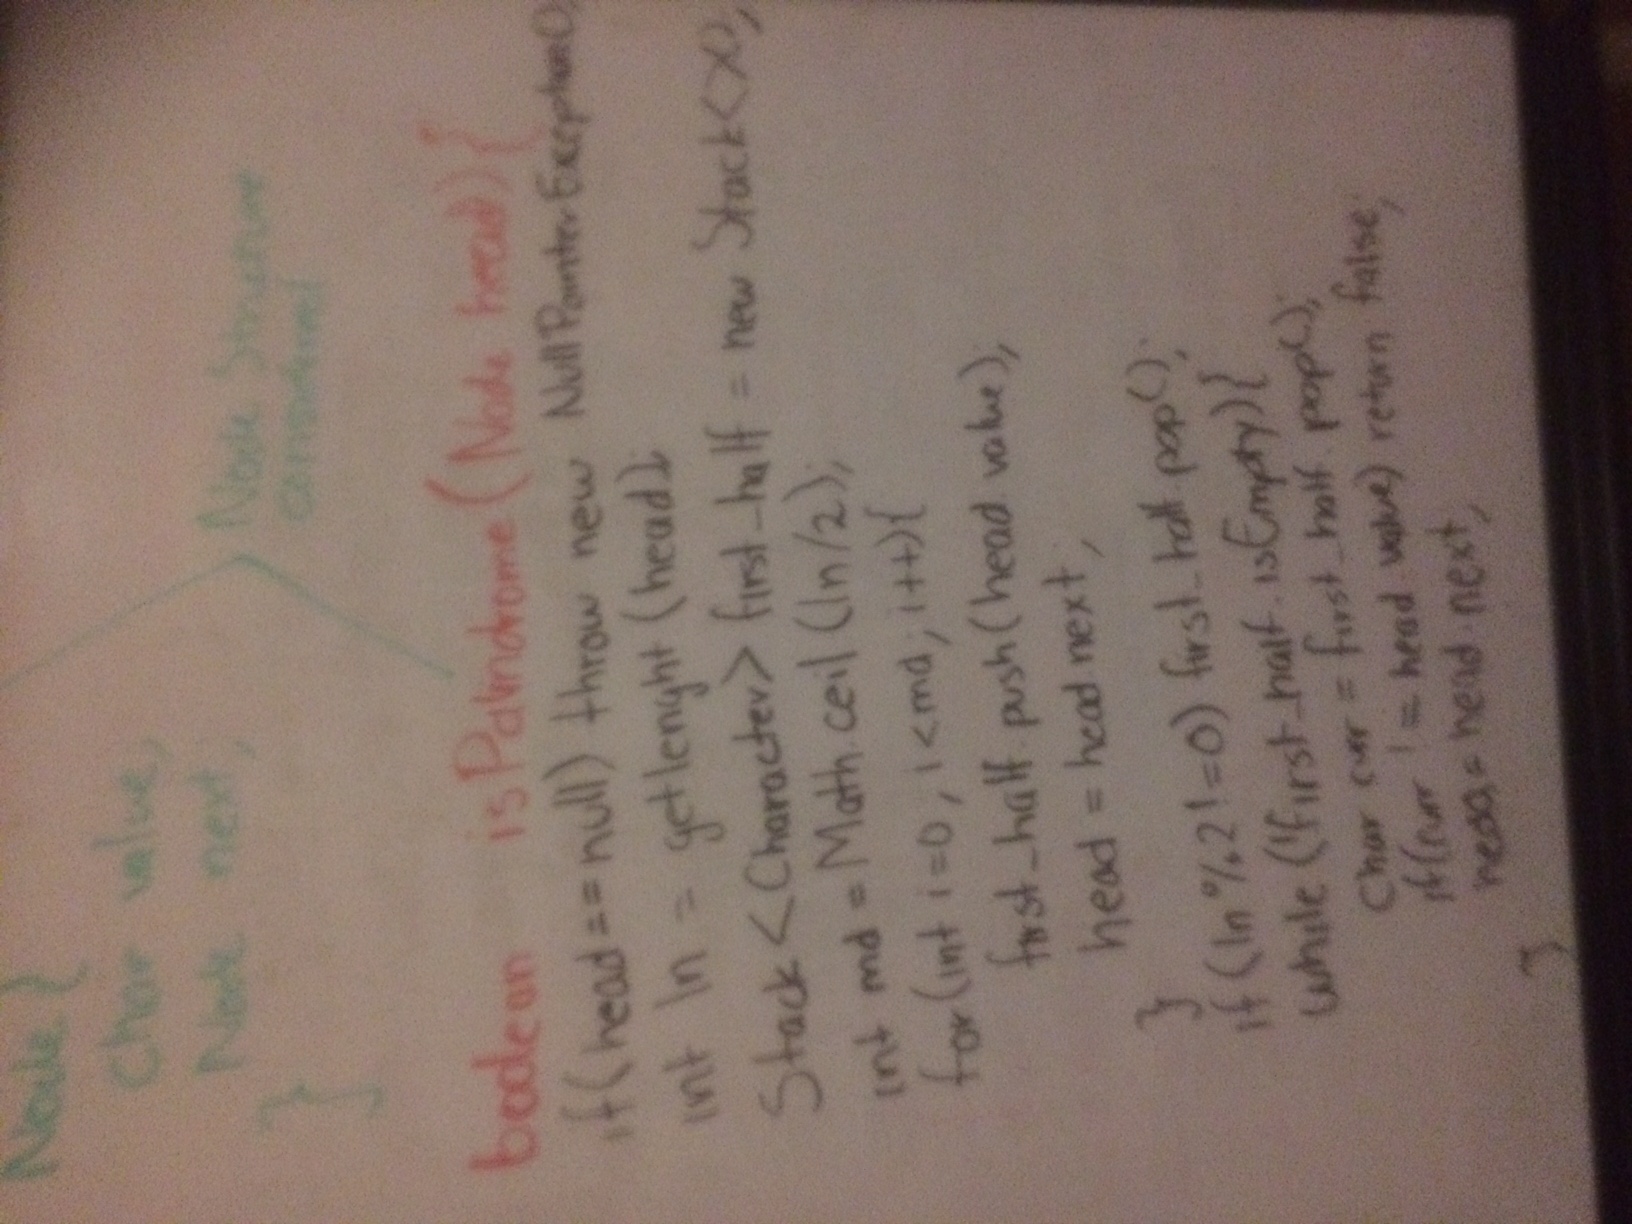 Node {
char value;
Node next;
}
Node Structure
considered
boolean isPalindrome (Node head) {
if (head == null) throw new NullPointerException();
int ln = getlenght (head);
Stack <Character> first_half = new Stack<>();
int md = Math.ceil (ln/2);
for (int i=0; i<md; i++){
first_half.push (head.value);
head = head.next;
}
if (ln %2 != 0) first_half.pop();
while (!first_half.isEmpty){
char curr = first_half.pop();
if (curr != head.value) return false;
head = head.next;
}